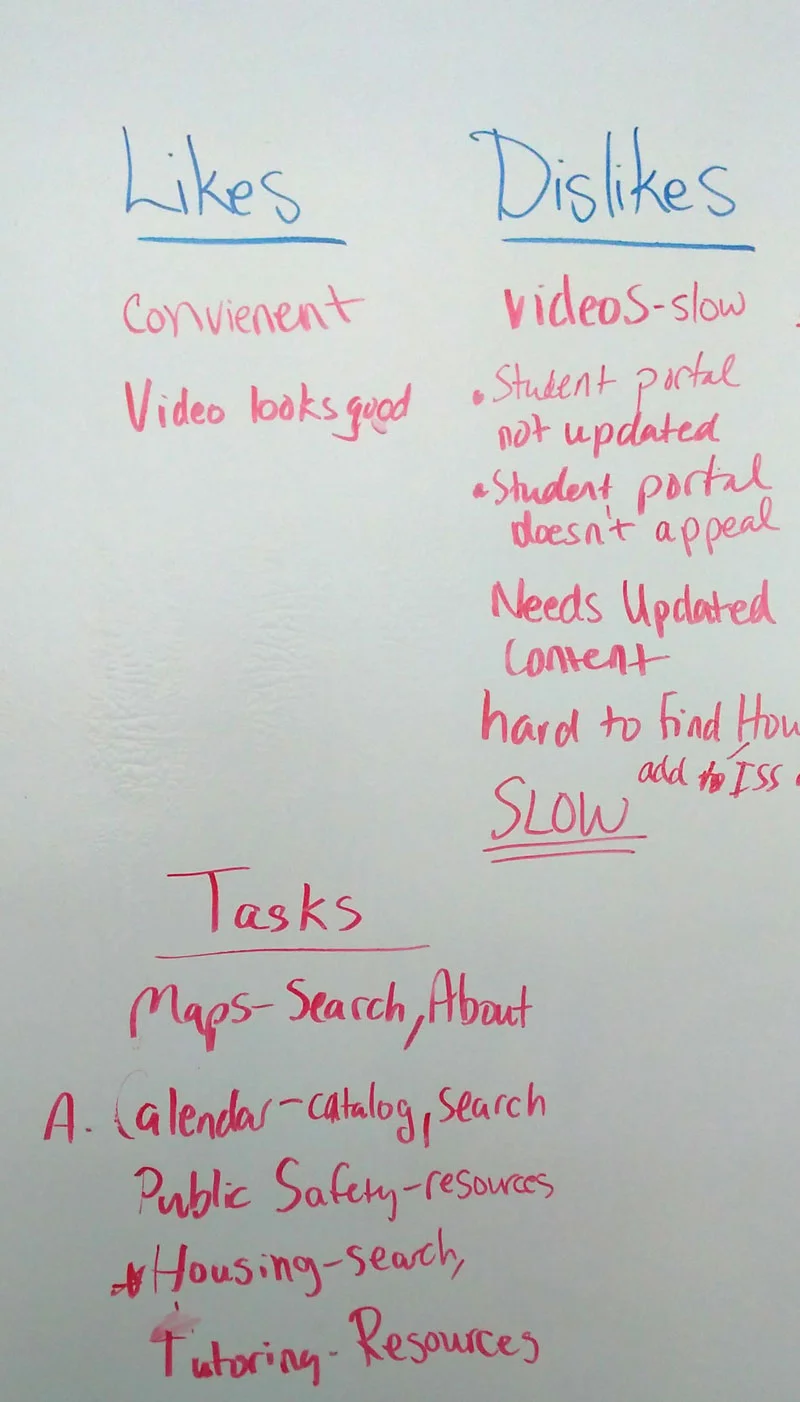 Likes
Convienent
Video looks good
Dislikes
Videos-slow
• Student portal
not updated
• Student portal
doesn't appeal
Needs Updated
Content
hard to find Hou
add to ISS
SLOW
Tasks
Maps-Search, About
A. Calendar-catalog, search
Public Safety-resources
*Housing-search,
Tutoring-Resources